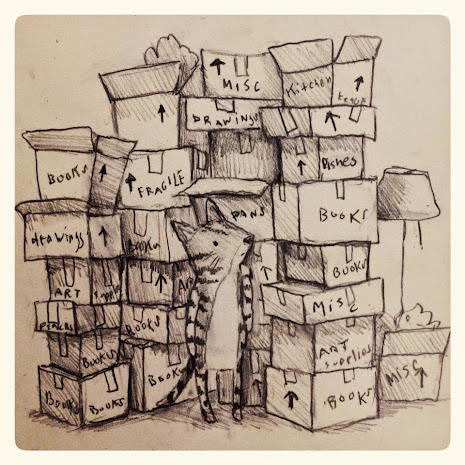 MISC
Kitchen
DRAWINGS
BOOKS
FRAGILE
Dishes
PANS
BOOKS
drawings
BOOKS
BOOKS
ART
MISC
BOOKS
ART
supplies
BOOKS
BOOKS
MISC
BOOKS
BOOKS
BOOKS